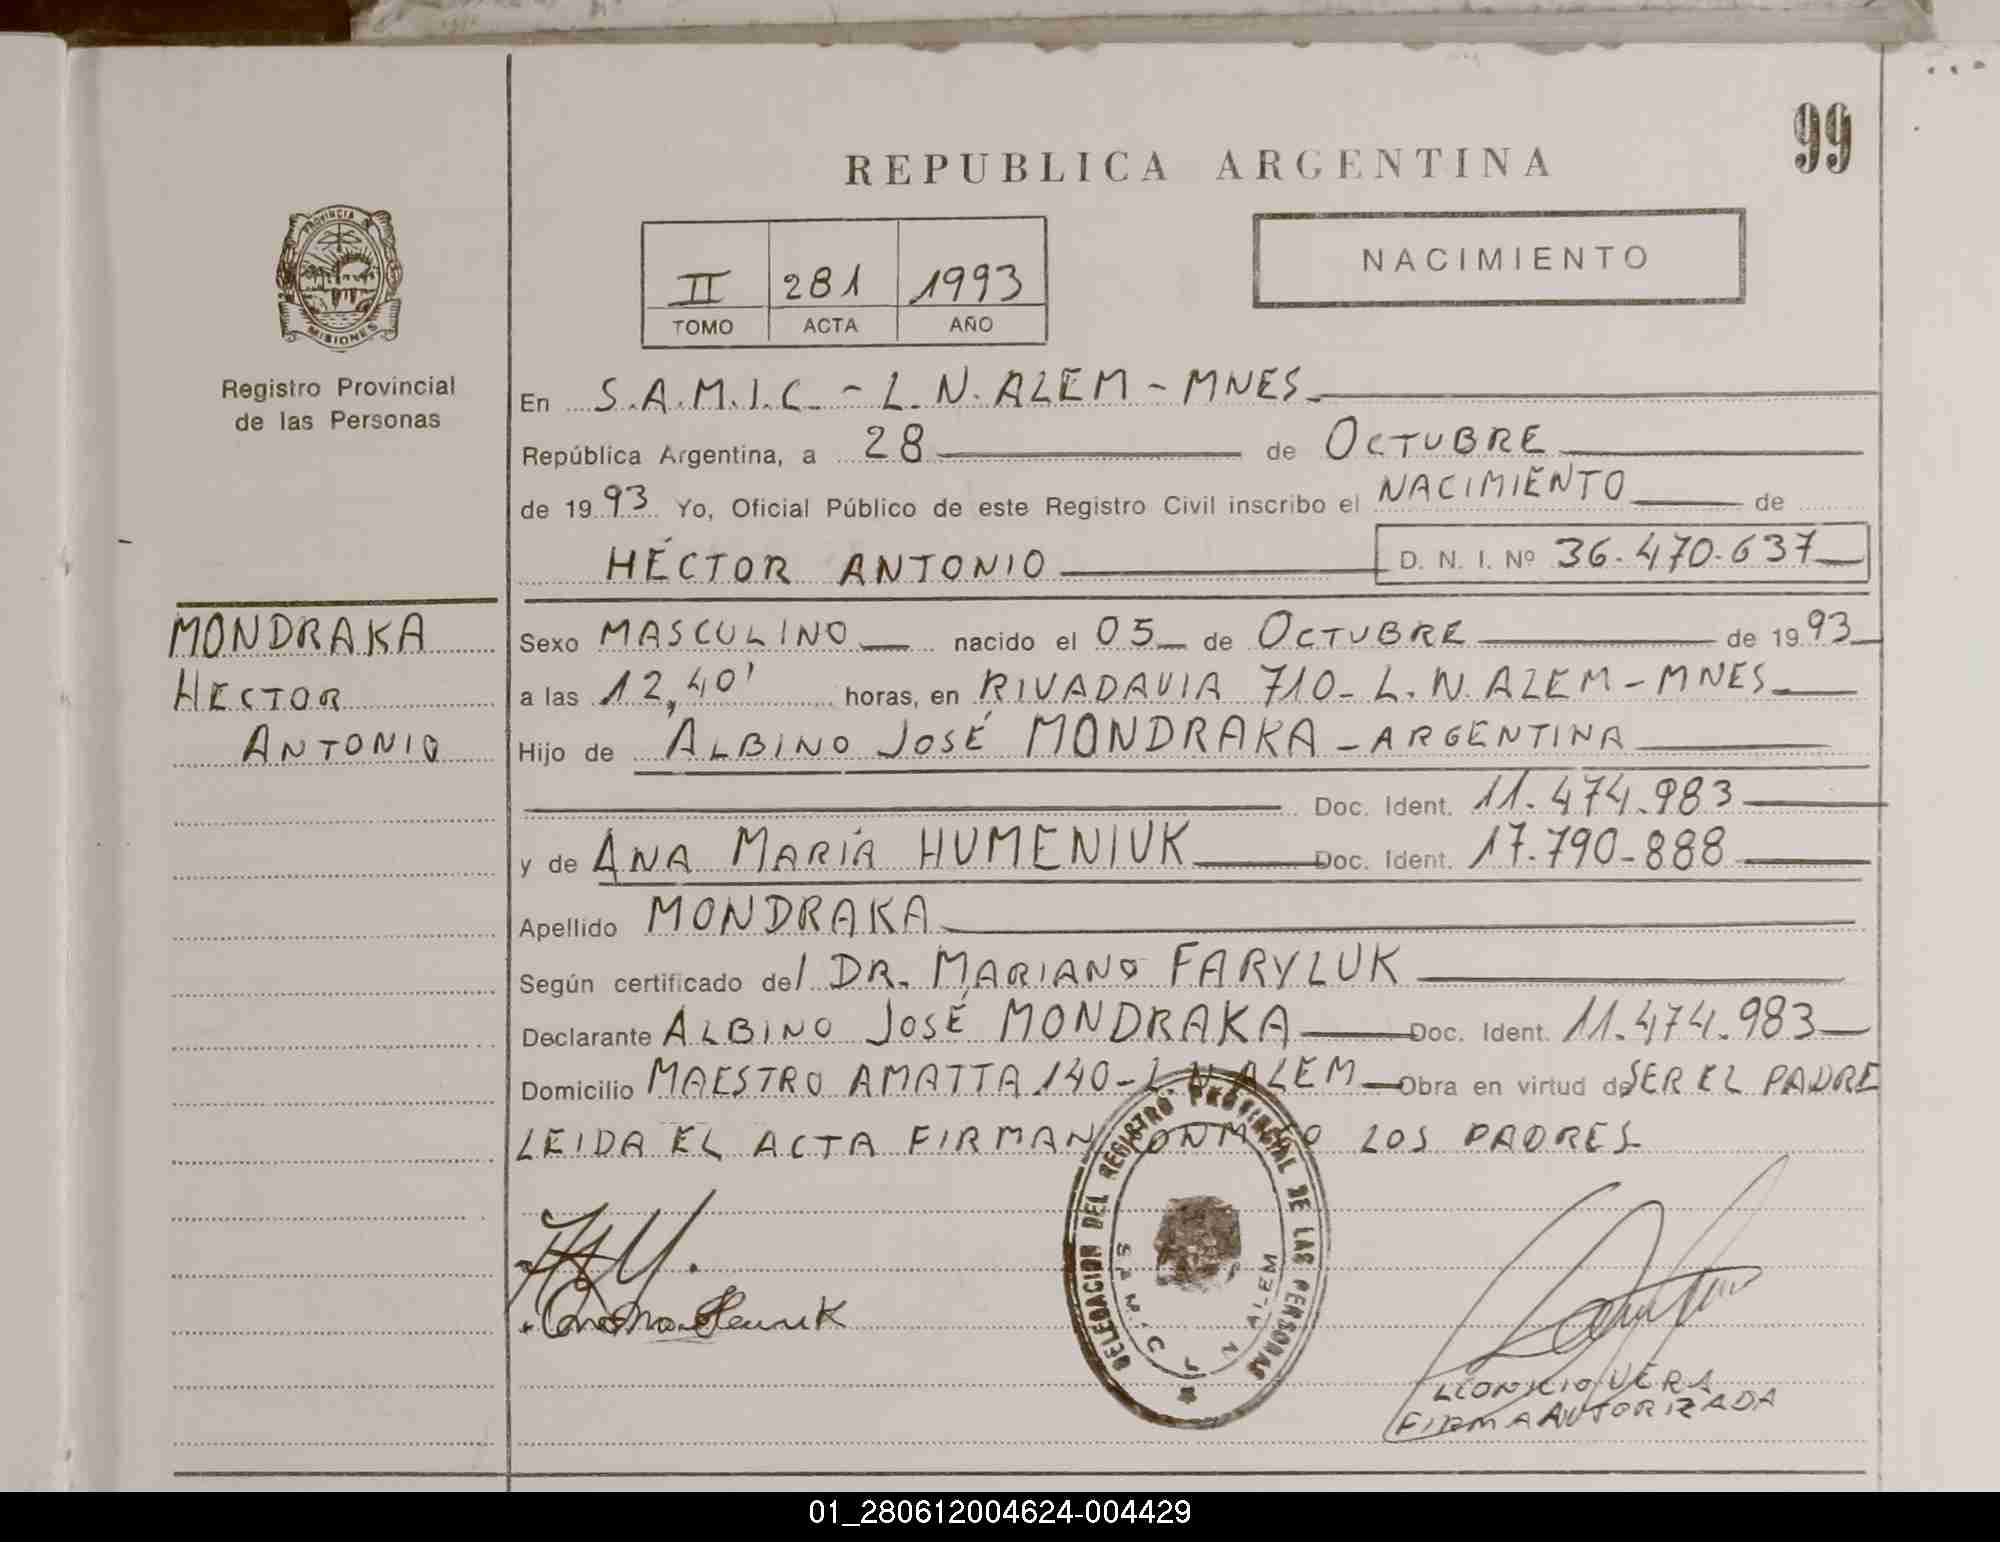 99
REPUBLICA ARGENTINA
PROVINCIA
MISIONES
Registro Provincial
de las Personas
II 281 1993
TOMO ACTA AÑO
NACIMIENTO
En S.A.M.I.C. - L. N. ALEM - MNES
República Argentina, a 28 de OCTUBRE
de 1993 Yo, Oficial Público de este Registro Civil inscribo el NACIMIENTO de
HÉCTOR ANTONIO D. N. I. Nº 36.470.637
MONDRAKA
HECTOR
ANTONIO
Sexo MASCULINO nacido el 05 de OCTUBRE de 1993
a las 12,40' horas, en RIVADAVIA 710 - L. N. ALEM - MNES
Hijo de ALBINO JOSÉ MONDRAKA - ARGENTINA
Doc. Ident. 11.474.983
y de ANA MARÍA HUMENIUK Doc. Ident. 17.790.888
Apellido MONDRAKA
Según certificado del DR. MARIANO FARYLUK
Declarante ALBINO JOSÉ MONDRAKA Doc. Ident. 11.474.983
Domicilio MAESTRO AMATTA 140 - L. N. ALEM Obra en virtud de SER EL PADRE
LEIDA EL ACTA FIRMAN CONMIGO LOS PADRES
DELEGACION DEL REGISTRO PROVINCIAL DE LAS PERSONAS
FIRMA AUTORIZADA
01_280612004624-004429